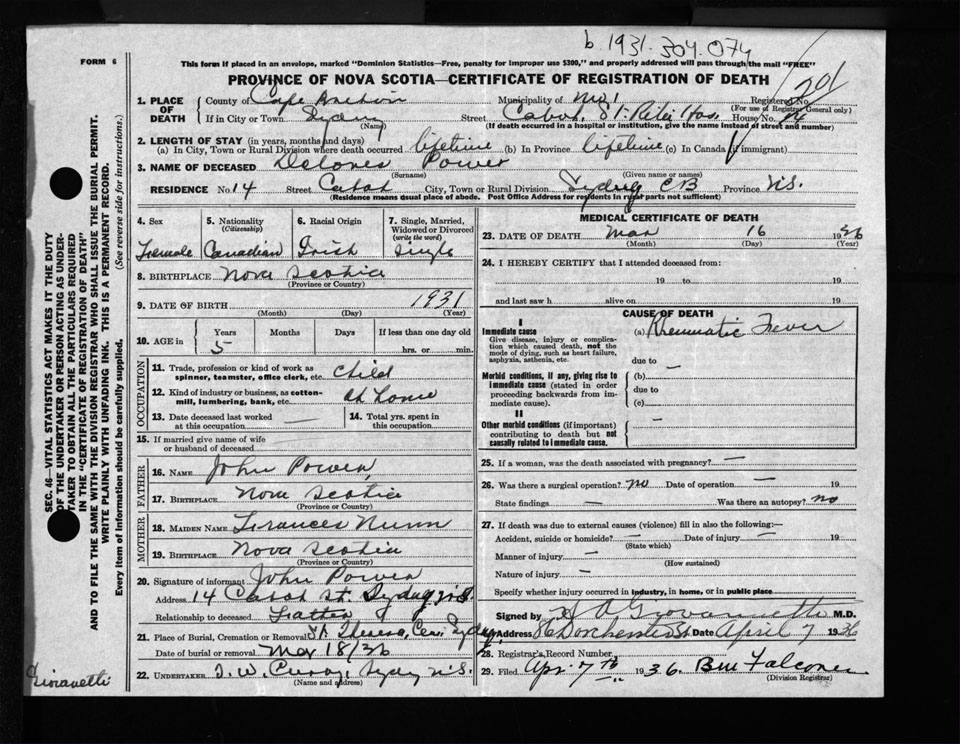 b. 1931-304-074
201
FORM 6
This form if placed in an envelope, marked "Dominion Statistics—Free, penalty for improper use $300," and properly addressed will pass through the mail "FREE"
PROVINCE OF NOVA SCOTIA—CERTIFICATE OF REGISTRATION OF DEATH
1. PLACE OF DEATH County of Cape Breton Municipality of No 1 Registered No.
(For use of Registrar General only)
If in City or Town Sydney Street Cabot, St. Rita Hos. House No. 14
(Name) (If death occurred in a hospital or institution, give the name instead of street and number)
2. LENGTH OF STAY (in years, months and days)
(a) In City, Town or Rural Division where death occurred lifetime (b) In Province lifetime (c) In Canada (if immigrant)
3. NAME OF DECEASED Delores Power
(Surname) (Given name or names)
RESIDENCE No. 14 Street Cabot City, Town or Rural Division Sydney CB Province N.S.
(Residence means usual place of abode. Post Office Address for residents in rural parts not sufficient)
4. Sex Female
5. Nationality (Citizenship) Canadian
6. Racial Origin Irish
7. Single, Married, Widowed or Divorced (write the word) single
8. BIRTHPLACE Nova Scotia
(Province or Country)
9. DATE OF BIRTH 1931
(Month) (Day) (Year)
10. AGE in Years 5 Months Days If less than one day old
hrs. or min.
OCCUPATION
11. Trade, profession or kind of work as spinner, teamster, office clerk, etc. child
12. Kind of industry or business, as cotton-mill, lumbering, bank, etc. at home
13. Date deceased last worked at this occupation —
14. Total yrs. spent in this occupation
15. If married give name of wife or husband of deceased
FATHER
16. NAME John Power
17. BIRTHPLACE Nova Scotia
(Province or Country)
MOTHER
18. MAIDEN NAME Frances Nunn
19. BIRTHPLACE Nova Scotia
(Province or Country)
20. Signature of informant John Power
Address 14 Cabot St. Sydney N.S.
Relationship to deceased Father
21. Place of Burial, Cremation or Removal St Theresa, Cem. Sydney
Date of burial or removal Mar 18/36
22. UNDERTAKER T. W. Curry, Sydney N.S.
(Name and address)
MEDICAL CERTIFICATE OF DEATH
23. DATE OF DEATH Mar 16 1936
(Month) (Day) (Year)
24. I HEREBY CERTIFY that I attended deceased from:
19 to 19
and last saw h alive on 19
CAUSE OF DEATH
I
Immediate cause (a) Rheumatic Fever
Give disease, injury or complication which caused death, not the mode of dying, such as heart failure, asphyxia, asthenia, etc.
due to —
Morbid conditions, if any, giving rise to immediate cause (stated in order proceeding backwards from immediate cause).
(b)
due to
(c)
II
Other morbid conditions (if important) contributing to death but not causally related to immediate cause. —
25. If a woman, was the death associated with pregnancy? —
26. Was there a surgical operation? no Date of operation — 19
State findings — Was there an autopsy? no
27. If death was due to external causes (violence) fill in also the following:—
Accident, suicide or homicide? — Date of injury — 19
(State which)
Manner of injury —
(How sustained)
Nature of injury —
Specify whether injury occurred in industry, in home, or in public place
Signed by A Giovannetti M.D.
Address Dorchester St Date April 7 1936
28. Registrar's Record Number
29. Filed Apr. 7th 1936. BM Falconer
(Division Registrar)
SEC. 46—VITAL STATISTICS ACT MAKES IT THE DUTY OF THE UNDERTAKER OR PERSON ACTING AS UNDERTAKER TO OBTAIN ALL THE PARTICULARS REQUIRED IN THE "CERTIFICATE OF REGISTRATION OF DEATH" AND TO FILE THE SAME WITH THE DIVISION REGISTRAR WHO SHALL ISSUE THE BURIAL PERMIT.
WRITE PLAINLY WITH UNFADING INK. THIS IS A PERMANENT RECORD.
Every item of Information should be carefully supplied. (See reverse side for instructions.)
Giovanetti